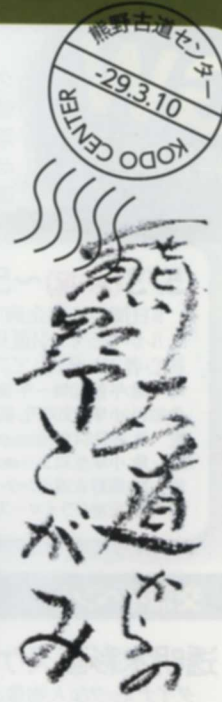 熊野古道センター
-29.3.10
KODO CENTER
熊野
古道からの
てがみ